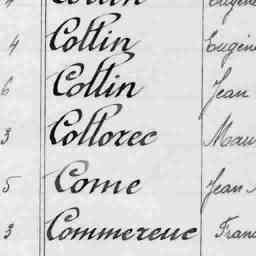 4 Collin Eugène
6 Collin Jean
3 Collorec
5 Come Jean
3 Commereuc